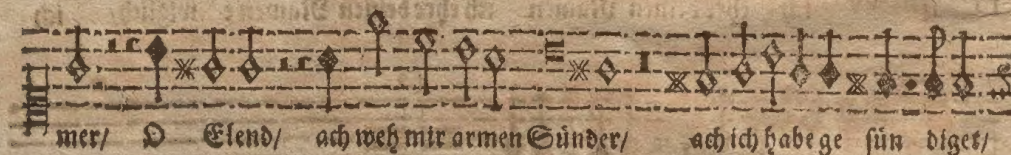 mer/ O Elend/ ach weh mir armen Sünder/ ach ich habe ge sün diget/